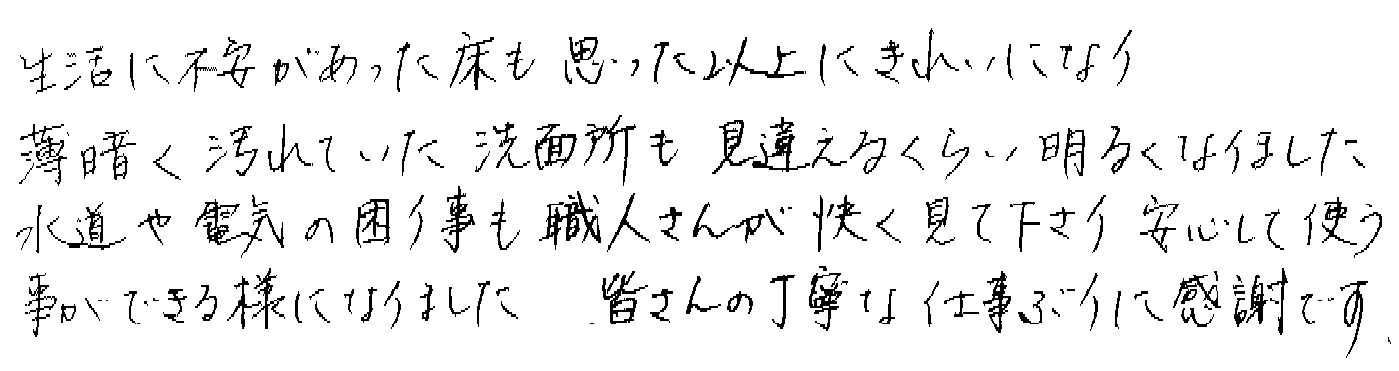 生活に不安があった床も思った以上にきれいになり
薄暗く汚れていた洗面所も見違えるくらい明るくなりました
水道や電気の困り事も職人さんが快く見て下さり安心して使う
事ができる様になりました　皆さんの丁寧な仕事ぶりに感謝です.